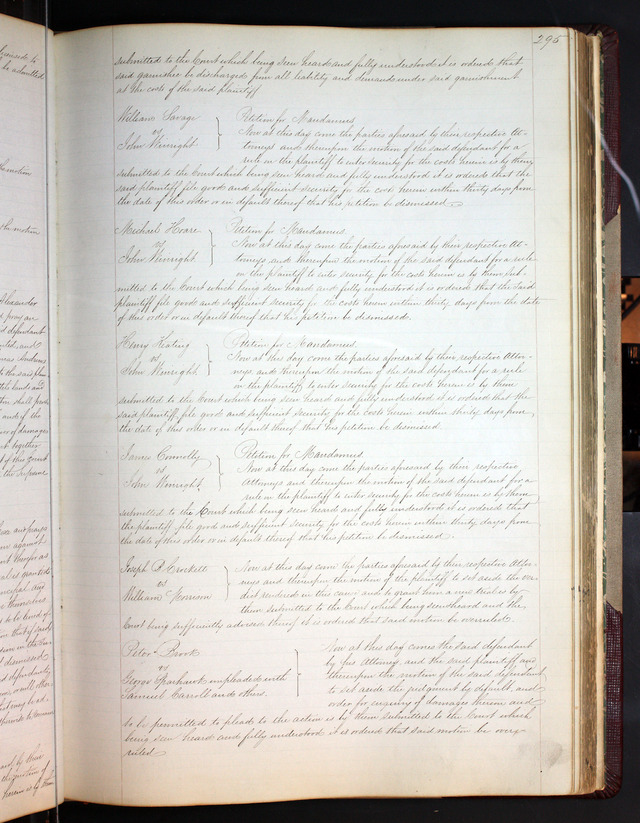 295
submitted to the Court which being seen heard and fully understood it is ordered that
said garnishee be discharged from all liability and demands under said garnishment
at the costs of the said plaintiff
William Savage
vs
John Winright
Petition for Mandamus
Now at this day come the parties aforesaid by their respective At-
torneys and thereupon the motion of the said defendant for a
rule on the plaintiff to enter security for the costs herein is by them
submitted to the Court which being seen heard and fully understood it is ordered that the
said plaintiff file good and sufficient security for the cost herein within thirty days from
the date of this order or in default thereof that his petition be dismissed.
Michael Hoare
vs
John Winright
Petition for Mandamus
Now at this day come the parties aforesaid by their respective At-
torneys and thereupon the motion of the said defendant for a rule
on the plaintiff to enter security for the costs herein is by them sub-
mitted to the Court which being seen heard and fully understood it is ordered that the said
plaintiff file good and sufficient security for the costs herein within thirty days from the date
of this order or in default thereof that his petition be dismissed.
Henry Kating
vs
John Winright
Petition for Mandamus.
Now at this day come the parties aforesaid by their respective Attor-
neys and thereupon the motion of the said defendant for a rule
on the plaintiff to enter security for the costs herein is by them
submitted to the Court which being seen heard and fully understood it is ordered that the
said plaintiff file good and sufficient security for the costs herein within thirty days from
the date of this order or in default thereof that his petition be dismissed
James Connolly
vs
John Winright.
Petition for Mandamus
Now at this day come the parties aforesaid by their respective
Attorneys and thereupon the motion of the said defendant for a
rule on the plaintiff to enter security for the costs herein is by them
submitted to the Court which being seen heard and fully understood it is ordered that
the plaintiff file good and sufficient security for the costs herein within thirty days from
the date of this order or in default thereof that his petition be dismissed.
Joseph P. Crockett
vs
William Morrison
Now at this day come the parties aforesaid by their respective Attor-
neys and thereupon the motion of the plaintiff to set aside the ver-
dict rendered in this cause and to grant him a new trial is by
them submitted to the Court which being seen heard and the
Court being sufficiently advised thereof it is ordered that said motion be overruled.
Peter Brook
vs
George Sparhawk impleaded with
Samuel Carroll and others.
Now at this day comes the said defendant
by his Attorney and the said plaintiff and
thereupon the motion of the said defendant
to set aside the judgment by default, and
order for inquiry of damages herein and
to be permitted to plead to the action is by them submitted to the Court which
being seen heard and fully understood it is ordered that said motion be over-
ruled